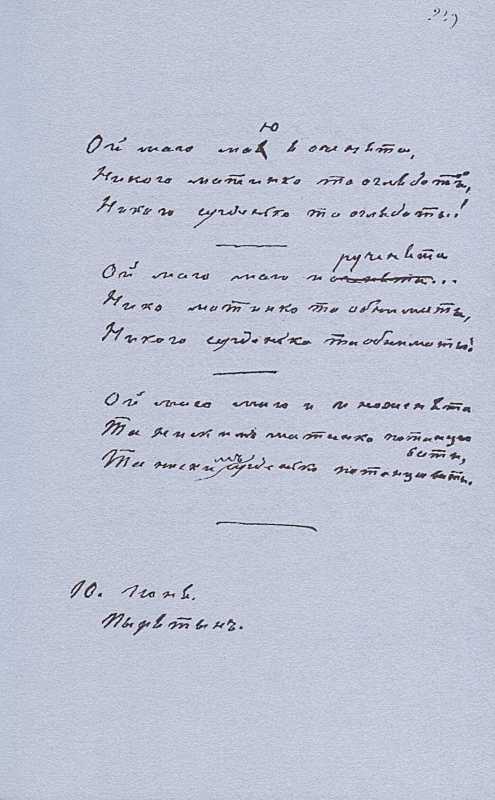 219
Ой маю маю я оченята,
Никого матинко та оглядаты,
Никого серденько та оглядаты!
Ой маю маю и рученята...
Нико матинко та обниматы,
Никого серденько та обниматы!
Ой маю маю и и ноженята
Та ни з кимъ матинко потанцюваты,
Та ни з кимъ серденько потанцюваты.
10. Іюня.
Пырятынъ.